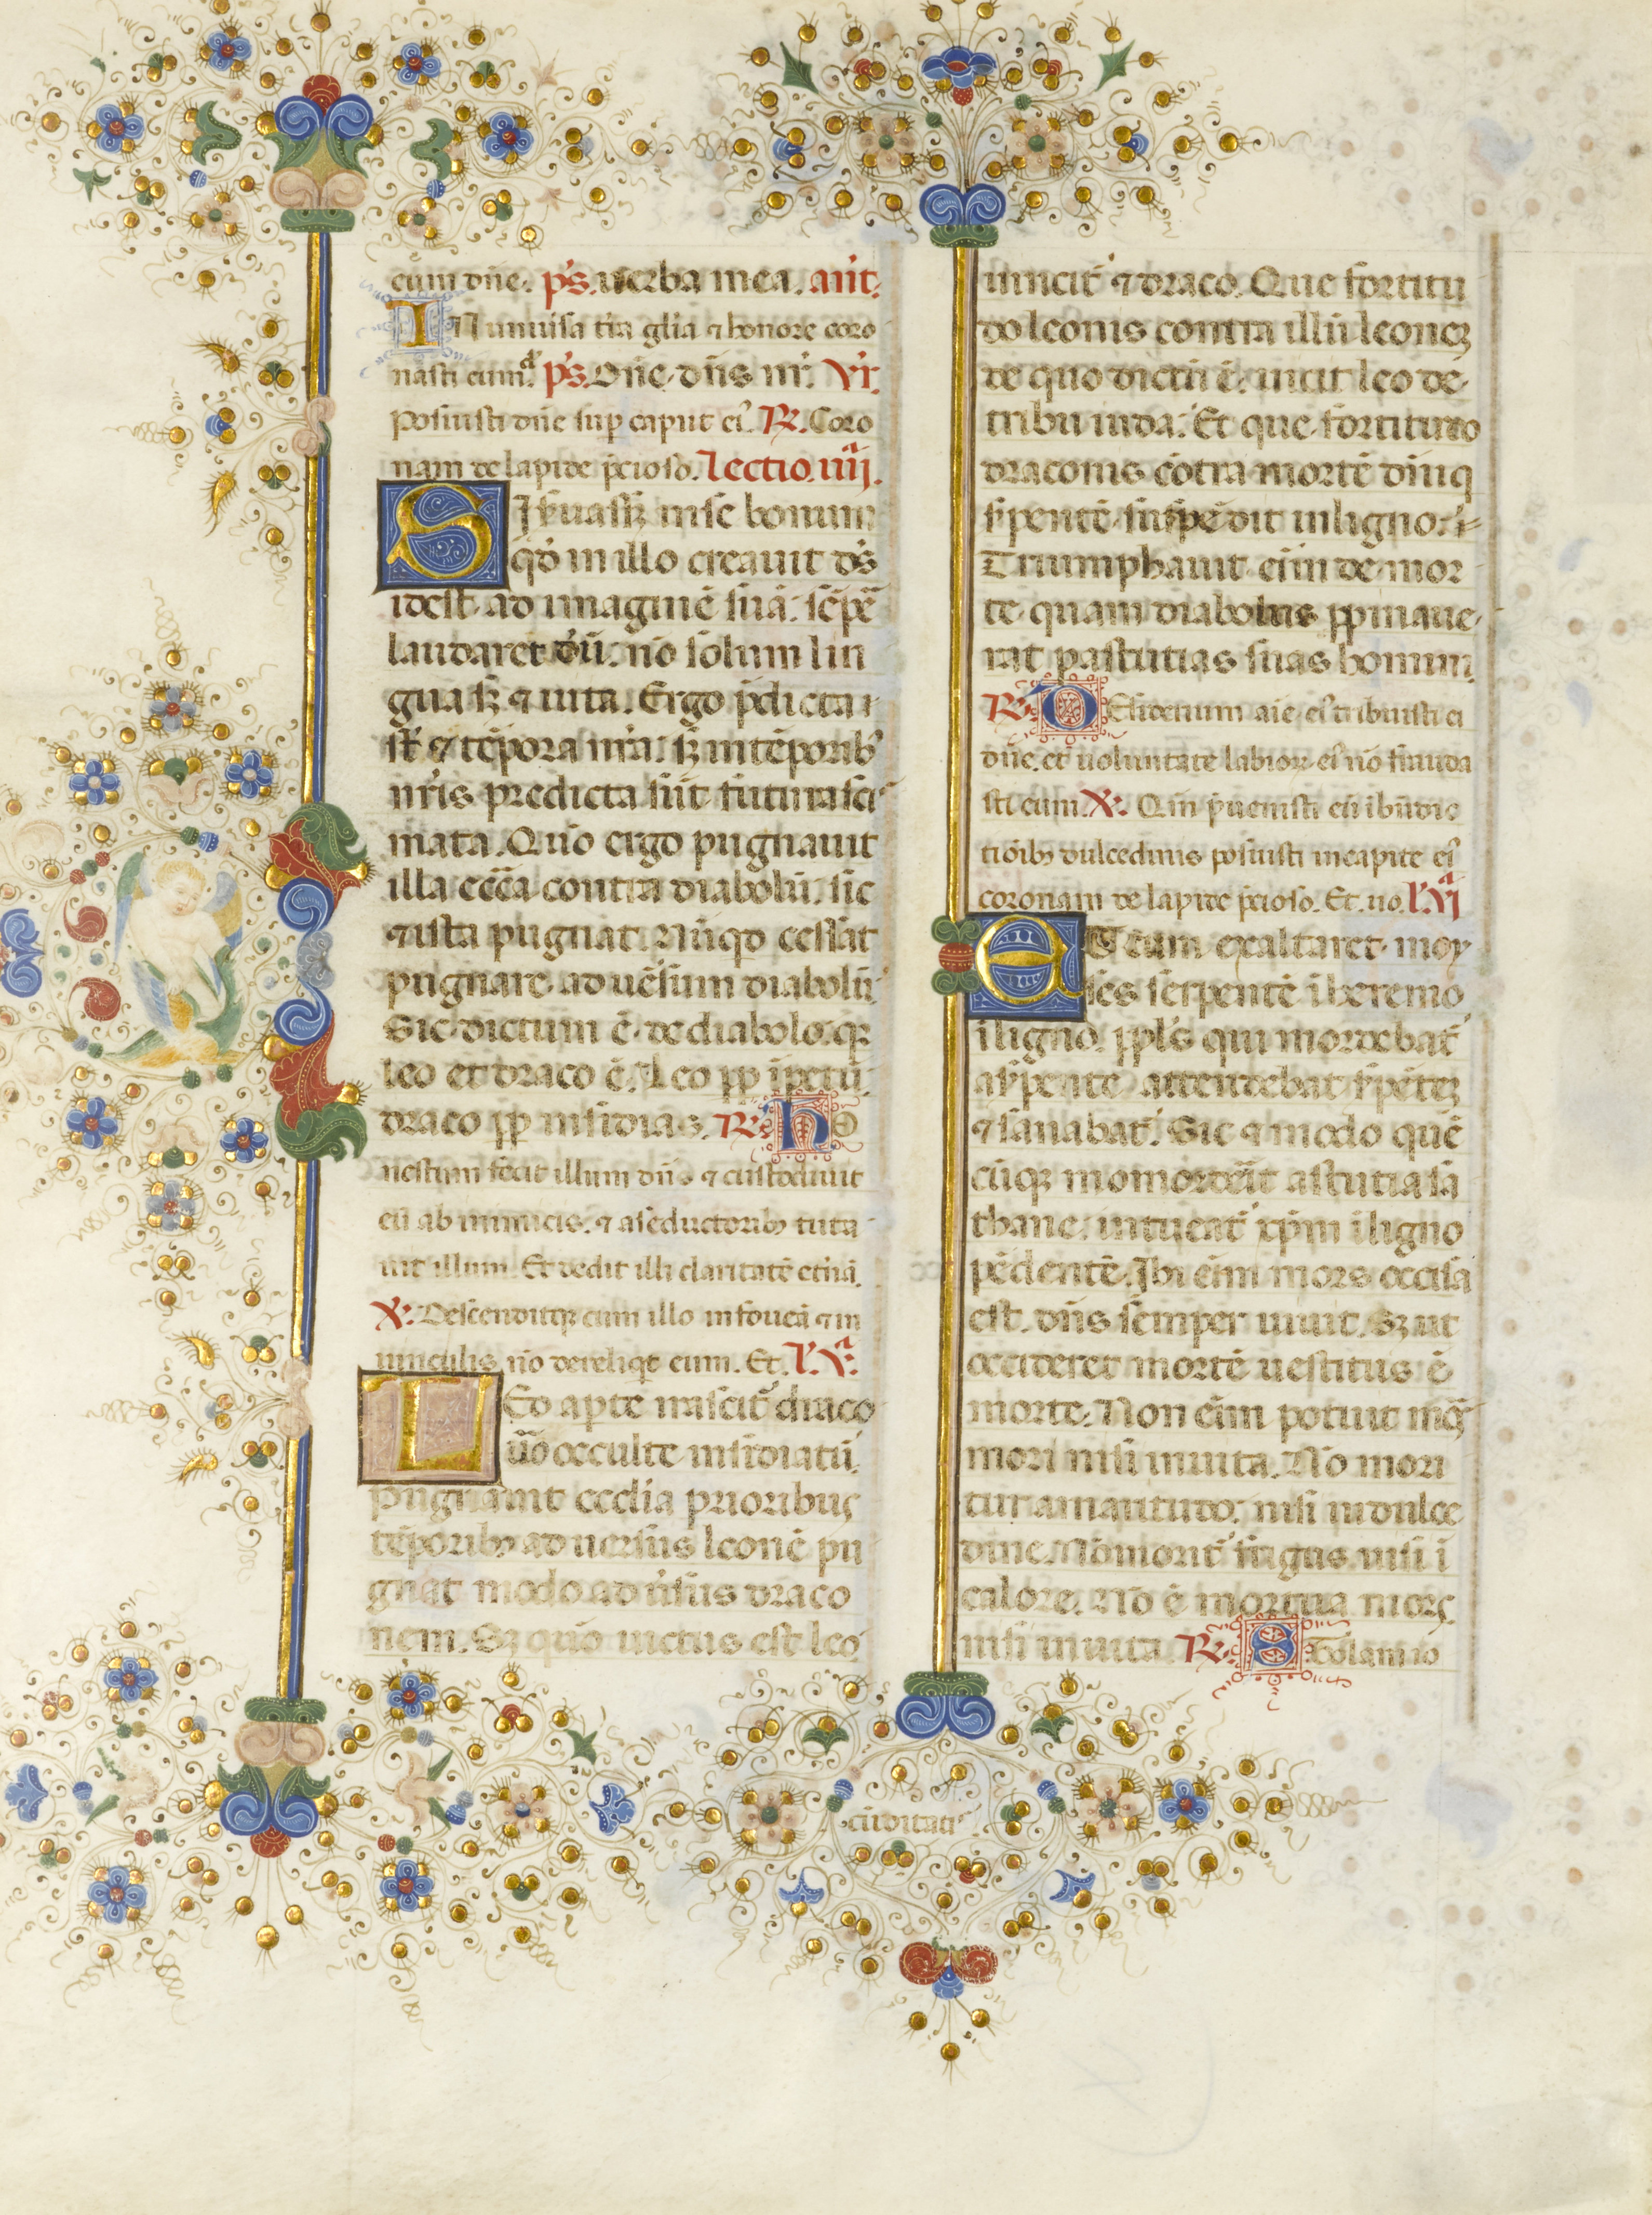 eum dñe. p̃s. uerba mea. añt.
IN inuisa tua gl̃ia ⁊ honore coro
nasti eum. p̃s. Dñe dñs nr̃. v̉r.
Posuisti dñe sup caput ei᷒. R. Coro
nam de lapide p̃cioso. lectio. iiij.
SI s̃uass; in se bonum
qd̃ in illo creauit ds̃
idest ad imaginẽ suã. sẽpẽ
laudaret dũ. nõ solum lin
gua s; ⁊ uita. Ergo p̃dicta
st̃ ⁊ tẽpora nr̃a. s; in tẽporib᷒
nr̃is predicta sũt futura sci
mata. Quõ ergo pugnauit
illa ecc̃a contra diabolũ. sic
⁊ ista pugnat. Nũqd cessat
pugnare aduẽsum diabolũ
Sic dictum ẽ de diabolo. q;
leo et draco ẽ. Leo pp ĩpetũ.
draco pp insidias. R. hO
nestum fecit illum dñs ⁊ custodiuit
eũ ab inimicis. ⁊ a seductorib᷒ tuta
uit illum. Et dedit illi claritatẽ et̃nã.
V. Descenditq; cum illo in foueã ⁊ in
uinculis nõ dereliq̃t eum. Et. l. v.ª
LEo apte irascit᷑ draco
ũo occulte insidiatũ.
Pugnauit ecclia prioribus
tẽporib᷒ aduersus leonẽ pu
gnat modo ad ũsus draco
nem. S; quõ uictus est leo
uincit᷑ ⁊ draco. Que fortitu
do leonis contra illũ leonez
de quo dictũ ẽ. uicit leo de
tribu iuda. Et que fortitudo
draconis cõtra mortẽ diuiq
s̃pentẽ suspẽdit in ligno.
Triumphauit eim de mor
te quam diabolus ppinaue
rat p astutias suas homini
R. DEsiderium aĩe ei᷒ tribuisti ei
dñe. et uoluntate labior ei᷒ nõ frauda
sti eum. V. Qm p̃uenisti eũ ĩ bñdic
tiõib᷒ dulcedinis posuisti in capite ei᷒
coronam de lapide p̃cioso. Et. uo. l. vi
ET cum exaltaret moy
ses serpentẽ ĩ heremo
ĩ ligno. ppl̃s qui mordebat᷑
a s̃pente attendebat s̃pẽtez
⁊ sanabat᷑. Sic ⁊ modo quẽ
cũq; momorderit astutia sa
thane. intueat᷑ xp̃m ĩ ligno
pẽdentẽ. Ibi eĩm mors occisa
est. dñs semper uiuit. S; ut
occideret mortẽ uestitus ẽ
morte. Non eĩm potuit mors
mori nisi in uita. Nõ mori
tur amaritudo. nisi in dulce
dine. Nõ morit᷑ frigus nisi ĩ
calore. Nõ ẽ mortua mors
nisi in uita. R. STolam io
cũditati᷒